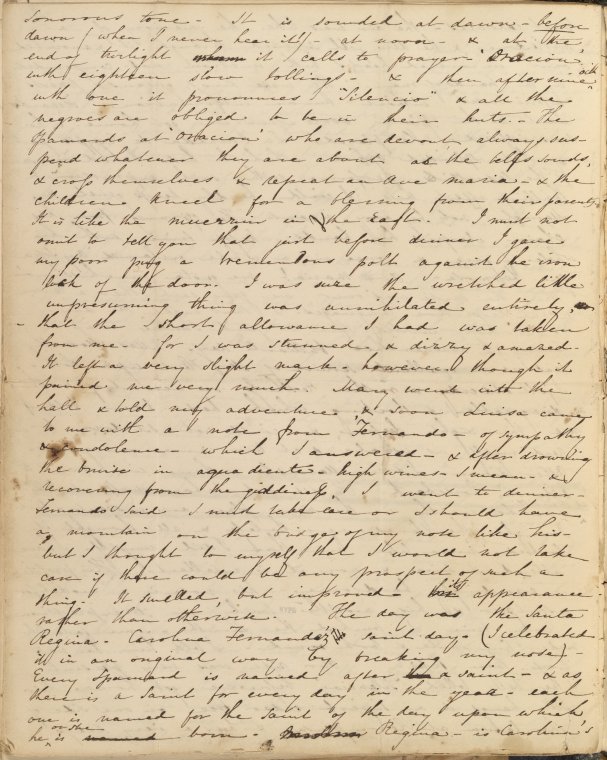 sonorous tone - It is sounded at dawn - before
dawn (when I never hear it!) - at noon - & at the
end of twilight it calls to prayer "Oracion
with eighteen slow tollings - & then after nine oclk
with one it pronounces "Silencio" & all the
negroes are obliged to be in their huts. - The
Spaniards at 'oracion' who are devout, always sus-
pend whatever they are about as the bells sounds,
& cross themselves & repeat an Ave maria - & the
children kneel for a blessing from their parents.
It is like the muezzin in the East. I must not
omit to tell you that just before dinner I gave
my poor pug a tremendous polt against the iron
lock of the door. I was sure the wretched little
unpresuming thing was annihilated entirely, -
that the short allowance I had was taken
from me - for I was stunned & dizzy & amazed.
It left a very slight mark - however though it
pained me very much. Mary went into the
hall & told my adventure, & soon Luisa came
to me with a note from Fernando - of sympathy
& condolence - which I answered - & after drowning
the bruise in aguadiente - high wines I mean - &
recovering from the giddiness, I went to dinner -
Fernando said I must take care or I should have
a mountain on the bridge of my nose like his -
but I thought to myself that I would not take
care if there could be any prospect of such a
thing. It swelled, but improved its appearance
rather than otherwise. The day was the Santa
Regina - Carolina Fernanda's saint day - (I celebrated
it in an original way by breaking my nose) -
Every Spaniard is named after a saint - & as
there is a saint for every day in the year - each
one is named for the saint of the day upon which
he or she is born - Regina - is Carolina's